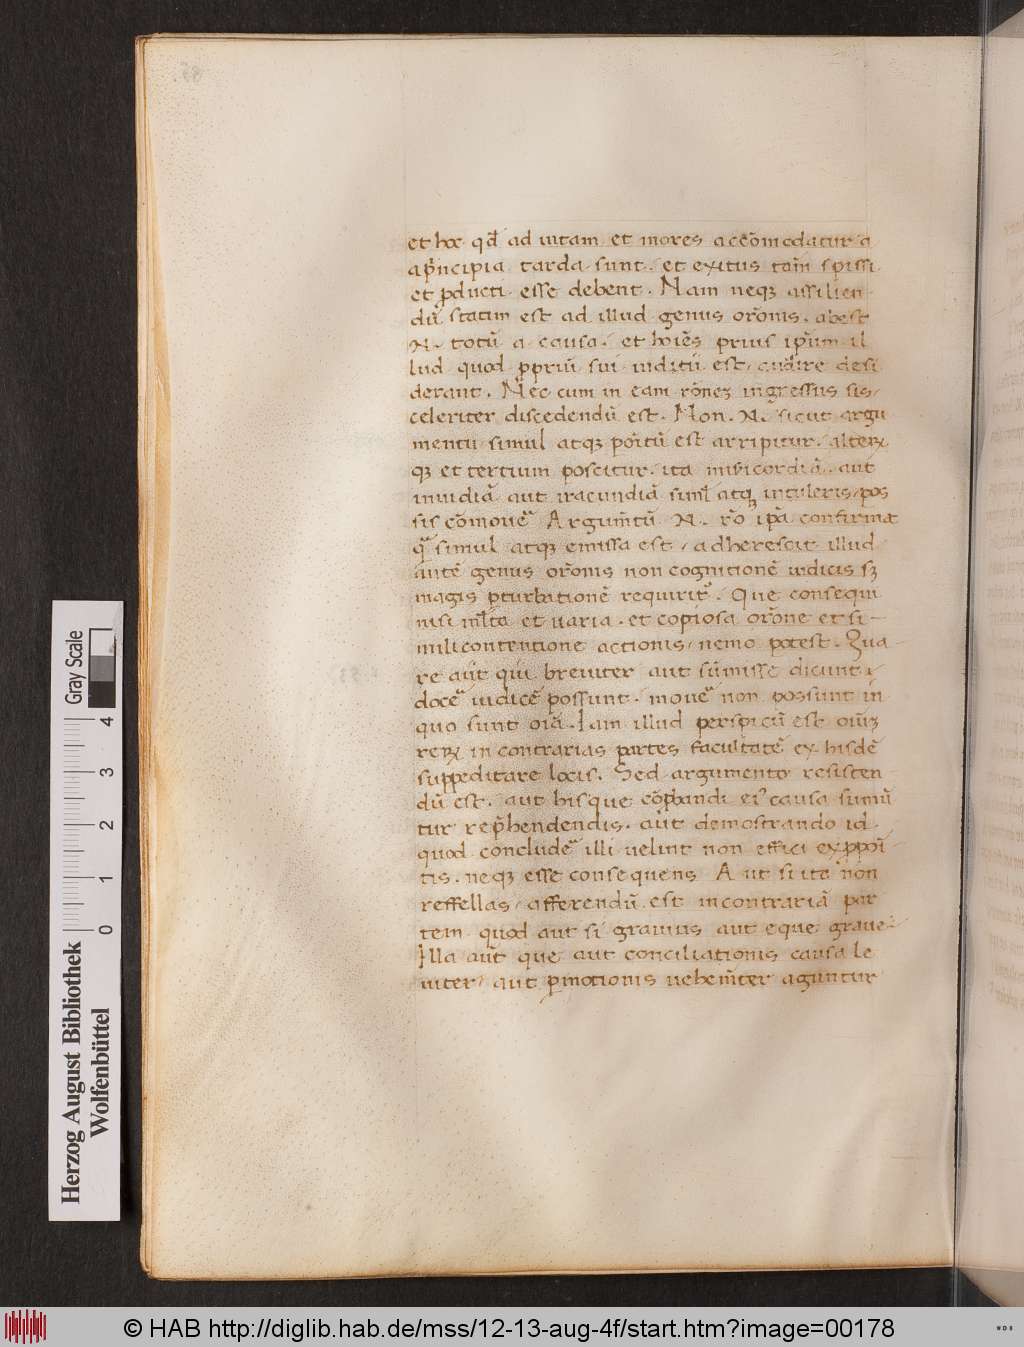 et hoc qđ ad uitam et mores accōmodatur a
apͥncipia tarda sunt. et exitus tam̄ spissi
et ꝓducti esse debent. Nam neqꝫ assilien
dū statim est ad illud genus orōnis. abest
.N. totū a causa. et hoīēs prius ip̄um il
lud quod ꝓpriū sui iuditii est, audire desi
derant. Nec cum in eam rōneꝫ ingressus sis,
celeriter discedendū est. Non .N. sicut argu
mentū simul atqꝫ poītū est arripitur. alterꝝ
qꝫ et tertium poscitur. ita mīsicordiā. aut
inuidiā aut iracundiā siml̄ atqꝫ intuleris, pos
sis cōmoueͬ Argum̄tū .N. rō ip̄a confirmat
q̄ simul atqꝫ emissa est, adherescit illud
autē genus orōnis non cognitionē iudicis sꝫ
magis ꝑturbationē requirit. Que consequi
nisi ml̄ta et uaria. et copiosa orōne et si-
mili contentione actionis, nemo potest. Qua
re aūt qui breuiter aut sūmisse dicunt,
doceͬ iudicē possunt. moueͬ non possunt in
quo sunt oīā. Iam illud perspicū est oīuꝫ
rerꝝ in contrarias partes facultatē ex hisdē
suppeditare locis. Sed argumento resisten
dū est. aut hisque cōꝓbandi eiꝰ causa sumū
tur rep̄hendendis. aūt demostrando id.
quod concludeͬ illi uelint non effici ex ꝓpoī-
tis. neqꝫ esse consequens Aut si ita non
reffellas, afferendū est in contrariā par
tem quod aut si grauius aut eque graue.
Illa aūt que aut conciliationis causa le
uiter, aut ꝑmotionis uehem̄ter aguntur
Herzog August Bibliothek
Wolfenbüttel
0 1 2 3 4
Gray Scale
© HAB http://diglib.hab.de/mss/12-13-aug-4f/start.htm?image=00178